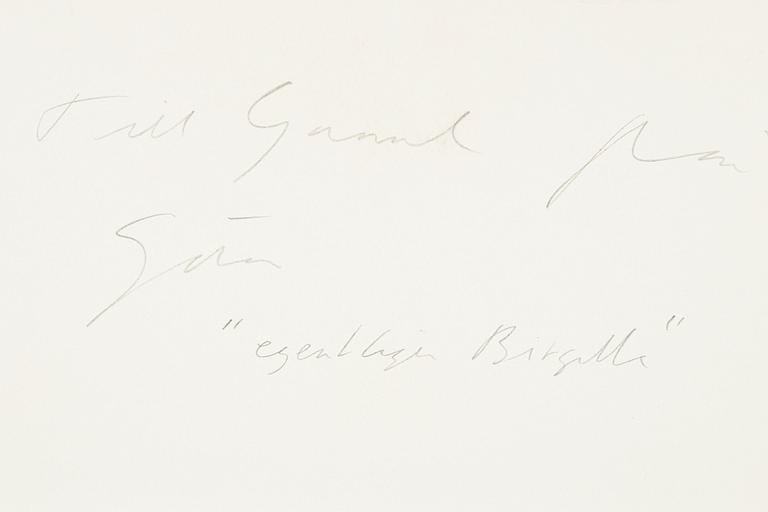 Till Gunnel från
Göran
"egentligen Birgitta"